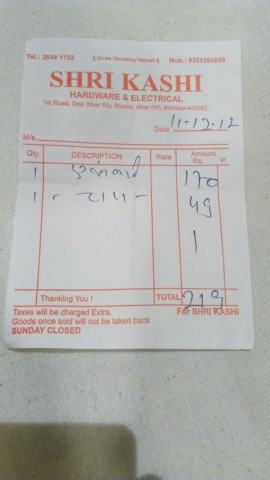 Tel.: 2648 1722 || Shree Ganeshay Namah || Mob.: 9322264629
SHRI KASHI
HARDWARE & ELECTRICAL
1st Road, Opp. Khar Rly. Station, Khar (W), Mumbai-400052.
Date 11-12-12
M/s.
Qty. DESCRIPTION Rate Amount Rs. P.
1 170
1 49
1
Thanking You ! TOTAL 219
Taxes will be charged Extra. For SHRI KASHI
Goods once sold will not be taken back
SUNDAY CLOSED